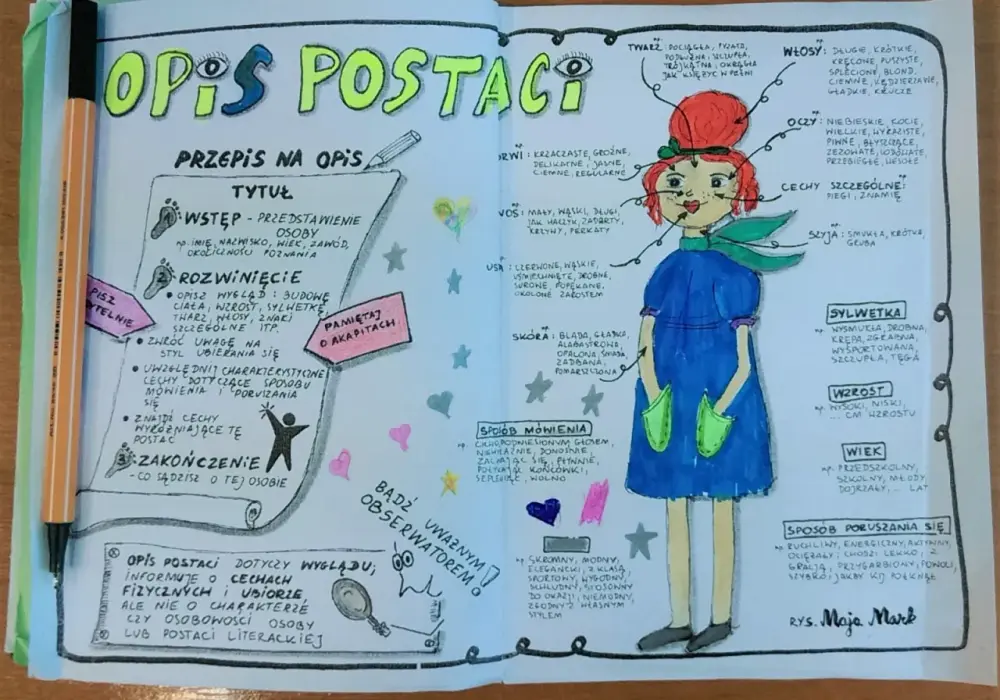 OPIS POSTACI
PRZEPIS NA OPIS
TYTUŁ
1 WSTĘP - PRZEDSTAWIENIE
OSOBY
np. IMIĘ, NAZWISKO, WIEK, ZAWÓD,
OKOLICZNOŚCI POZNANIA
2 ROZWINIĘCIE
• OPISZ WYGLĄD: BUDOWĘ
CIAŁA, WZROST, SYLWETKĘ,
TWARZ, WŁOSY, ZNAKI
SZCZEGÓLNE ITP.
• ZWRÓĆ UWAGĘ NA
STYL UBIERANIA SIĘ
• UWZGLĘDNIJ CHARAKTERYSTYCZNE
CECHY DOTYCZĄCE SPOSOBU
MÓWIENIA I PORUSZANIA
SIĘ
• ZNAJDŹ CECHY
WYRÓŻNIAJĄCE TĘ
POSTAĆ
3 ZAKOŃCZENIE
- CO SĄDZISZ O TEJ OSOBIE
PISZ
YTELNIE
PAMIĘTAJ
O AKAPITACH
BĄDŹ UWAŻNYM
OBSERWATOREM!
OPIS POSTACI DOTYCZY WYGLĄDU,
INFORMUJE O CECHACH
FIZYCZNYCH I UBIORZE,
ALE NIE O CHARAKTERZE
CZY OSOBOWOŚCI OSOBY
LUB POSTACI LITERACKIEJ
TWARZ: np. POCIĄGŁA, PYZATA,
PODŁUŻNA, SZCZUPŁA,
TRÓJKĄTNA, OKRĄGŁA
JAK KSIĘŻYC W PEŁNI
WŁOSY: np. DŁUGIE, KRÓTKIE,
KRĘCONE, PUSZYSTE,
SPLECIONE, BLOND,
CIEMNE, KĘDZIERZAWE,
GŁADKIE, KRUCZE
OCZY: np. NIEBIESKIE, KOCIE,
WIELKIE, WYRAZISTE,
PIWNE, BŁYSZCZĄCE,
ZEZOWATE,
PRZEBIEGŁE, WESOŁE
CECHY SZCZEGÓLNE:
np. PIEGI, ZNAMIĘ
SZYJA: np. SMUKŁA, KRÓTKA,
GRUBA
BRWI: np. KRZACZASTE, GROŹNE,
DELIKATNE, JASNE,
CIEMNE, REGULARNE
NOS: np. MAŁY, WĄSKI, DŁUGI,
JAK HACZYK, ZADARTY,
KRZYWY, PERKATY
USTA: np. CZERWONE, WĄSKIE,
UŚMIECHNIĘTE, DROBNE,
SUROWE, POPĘKANE,
OKOLONE ZAROSTEM
SKÓRA: np. BLADA, GŁADKA,
ALABASTROWA,
OPALONA, ŚNIADA,
ZADBANA,
POMARSZCZONA
SYLWETKA
np. WYSMUKŁA, DROBNA,
KRĘPA, ZGRABNA,
WYSPORTOWANA,
SZCZUPŁA, TĘGA
WZROST
np. WYSOKI, NISKI,
... CM WZROSTU
WIEK
np. PRZEDSZKOLNY,
SZKOLNY, MŁODY,
DOJRZAŁY, ... LAT
SPOSÓB MÓWIENIA
np. CICHO, PODNIESIONYM GŁOSEM,
NIEWYRAŹNIE, DONOŚNIE,
ZACINAJĄC SIĘ, PŁYNNIE,
POŁYKAJĄC KOŃCÓWKI,
SEPLENIĄC, WOLNO
SPOSÓB PORUSZANIA SIĘ
np. RUCHLIWY, ENERGICZNY, AKTYWNY,
OCIĘŻAŁY; CHODZI LEKKO, Z
GRACJĄ, PRZYGARBIONY, POWOLI,
SZYBKO, JAKBY KIJ POŁKNĄŁ
np. SKROMNY, MODNY,
ELEGANCKI, Z KLASĄ,
SPORTOWY, WYGODNY,
SCHLUDNY, STOSOWNY
DO OKAZJI, NIEMODNY,
ZGODNY Z WŁASNYM
STYLEM
RYS. Maja Mark